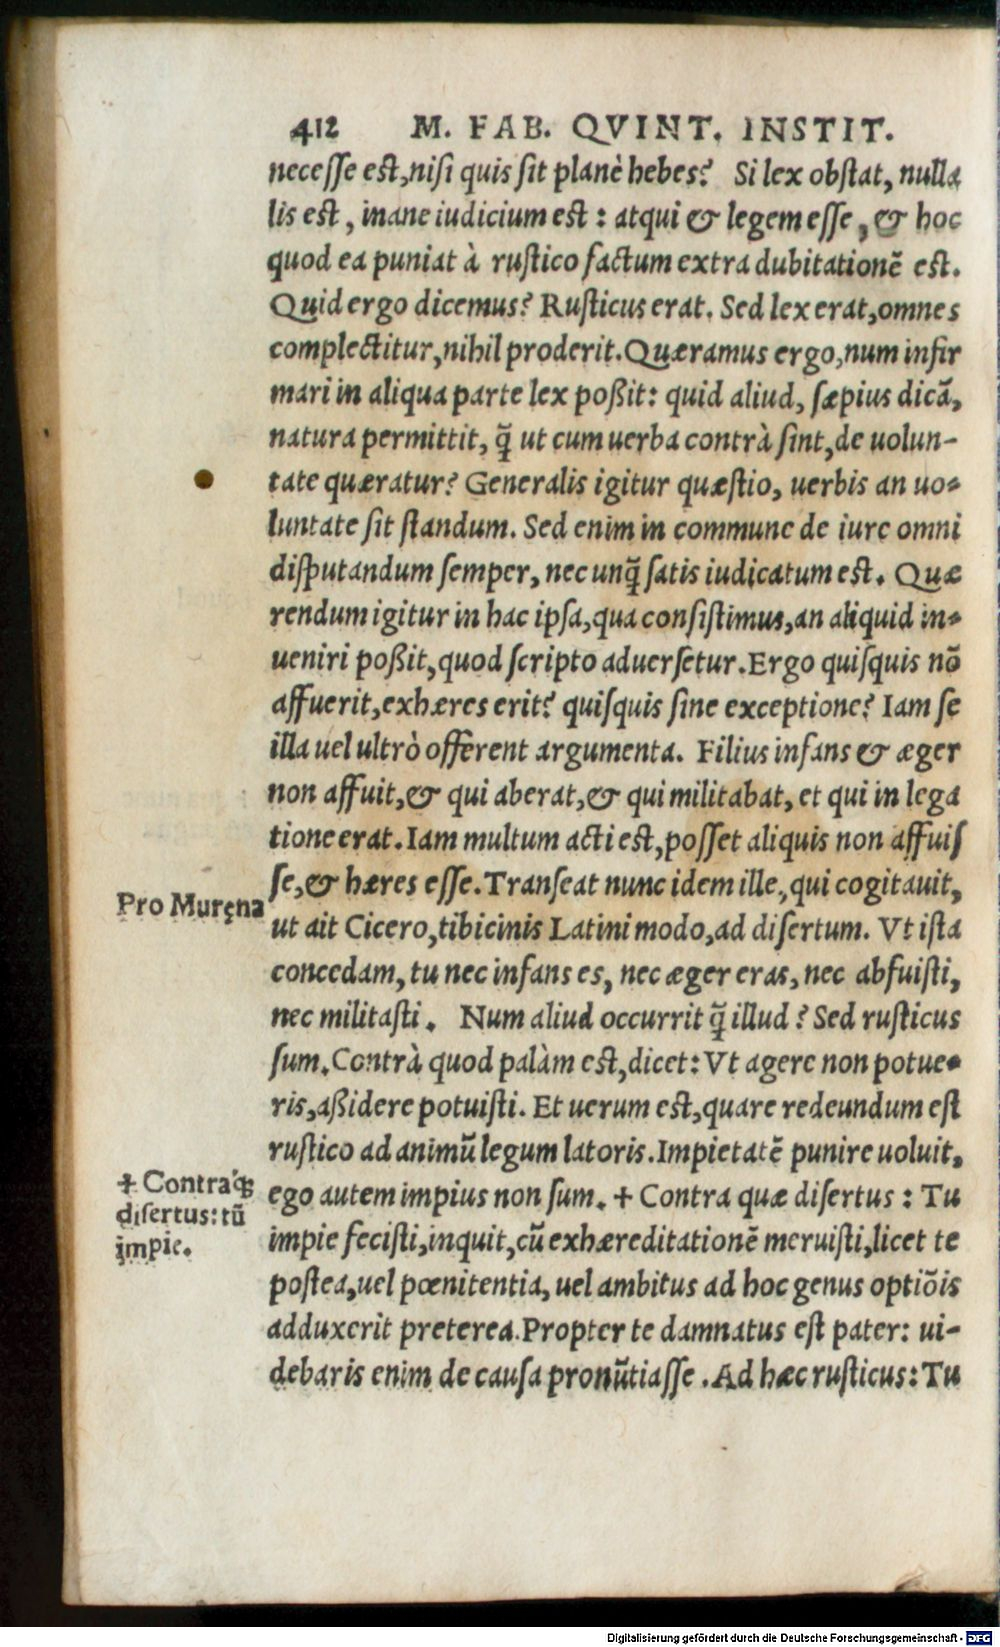 412 M. FAB. QVINT. INSTIT.
necesse est, nisi quis sit planè hebes? Si lex obstat, nulla
lis est, inane iudicium est: atqui & legem esse, & hoc
quod ea puniat à rustico factum extra dubitationẽ est.
Quid ergo dicemus? Rusticus erat. Sed lex erat, omnes
complectitur, nihil proderit. Quæramus ergo, num infir
mari in aliqua parte lex poßit: quid aliud, sæpius dicã,
natura permittit, q̃ ut cum uerba contrà sint, de uolun-
tate quæratur? Generalis igitur quæstio, uerbis an uo-
luntate sit standum. Sed enim in commune de iure omni
disputandum semper, nec unq̃ satis iudicatum est. Quæ
rendum igitur in hac ipsa, qua consistimus, an aliquid in-
ueniri poßit, quod scripto aduersetur. Ergo quisquis nõ
affuerit, exhæres erit? quisquis sine exceptione? Iam se
illa uel ultrò offerent argumenta. Filius infans & æger
non affuit, & qui aberat, & qui militabat, et qui in lega
tione erat. Iam multum acti est, posset aliquis non affuis
se, & hæres esse. Transeat nunc idem ille, qui cogitauit,
Pro Muręna
ut ait Cicero, tibicinis Latini modo, ad disertum. Vt ista
concedam, tu nec infans es, nec æger eras, nec abfuisti,
nec militasti. Num aliud occurrit q̃ illud? Sed rusticus
sum. Contrà quod palàm est, dicet: Vt agere non potue-
ris, aßidere potuisti. Et uerum est, quare redeundum est
rustico ad animũ legum latoris. Impietatẽ punire uoluit,
ego autem impius non sum. + Contra quæ disertus: Tu
+ Contra q̃
disertus: tũ
impie.
impie fecisti, inquit, cũ exhæreditationẽ meruisti, licet te
postea, uel pœnitentia, uel ambitus ad hoc genus optiõis
adduxerit preterea. Propter te damnatus est pater: ui-
debaris enim de causa pronũtiasse. Ad hæc rusticus: Tu
Digitalisierung gefördert durch die Deutsche Forschungsgemeinschaft - DFG